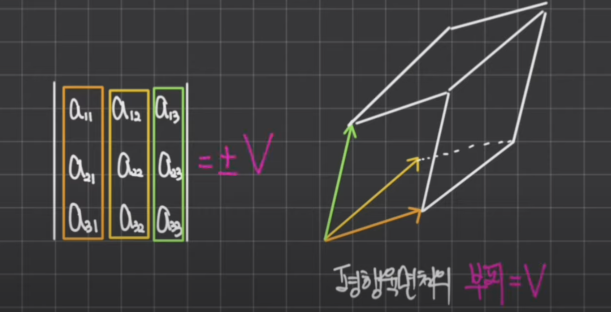 | a₁₁ a₁₂ a₁₃ |
| a₂₁ a₂₂ a₂₃ | = ± V
| a₃₁ a₃₂ a₃₃ |
평행육면체의 부피 = V